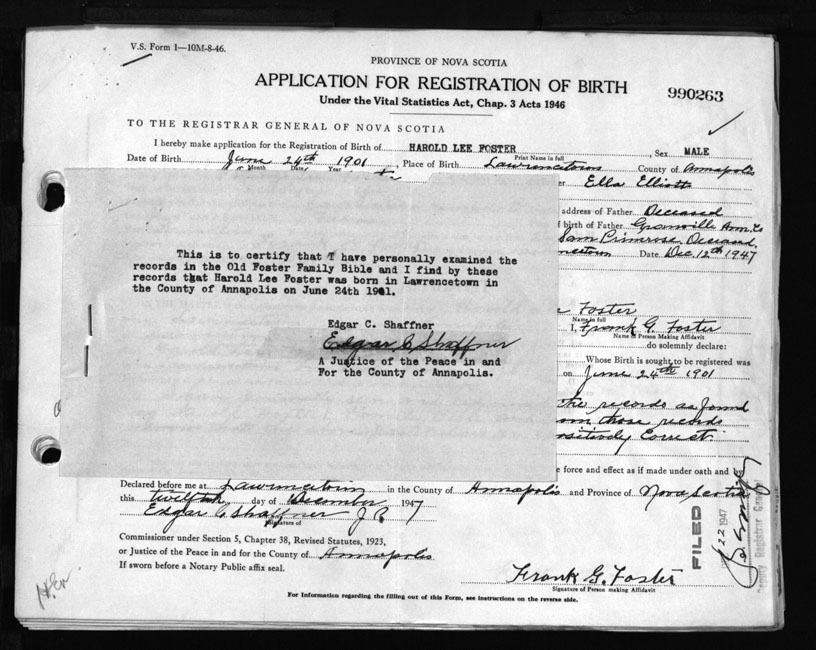 V.S. Form 1—10M-8-46.
PROVINCE OF NOVA SCOTIA
APPLICATION FOR REGISTRATION OF BIRTH
990263
Under the Vital Statistics Act, Chap. 3 Acts 1946
TO THE REGISTRAR GENERAL OF NOVA SCOTIA
I hereby make application for the Registration of Birth of HAROLD LEE FOSTER, Sex MALE
Print Name in full
Date of Birth June 24th 1901, Place of Birth Lawrencetown County of Annapolis
Month Date Year
Ella Elliott
address of Father Deceased
birth of Father Granville Ann. Co
Sam Primrose Deceased
Date Dec. 12th 1947
This is to certify that I have personally examined the
records in the Old Foster Family Bible and I find by these
records that Harold Lee Foster was born in Lawrencetown in
the County of Annapolis on June 24th 1901.
Edgar C. Shaffner
Edgar C Shaffner
A Justice of the Peace in and
For the County of Annapolis.
Foster
Name in full
I, Frank G. Foster
Name of Person Making Affidavit
do solemnly declare:
Whose Birth is sought to be registered was
on June 24th 1901
the records as found
those records
Correct
force and effect as if made under oath and
Declared before me at Lawrencetown in the County of Annapolis and Province of Nova Scotia
this twelfth day of December 1947
Edgar C Shaffner J P
Signature of
Commissioner under Section 5, Chapter 38, Revised Statutes, 1923,
or Justice of the Peace in and for the County of Annapolis
If sworn before a Notary Public affix seal.
FILED
22 1947
Deputy Registrar General
Frank G. Foster
Signature of Person making Affidavit
For Information regarding the filling out of this Form, see instructions on the reverse side.